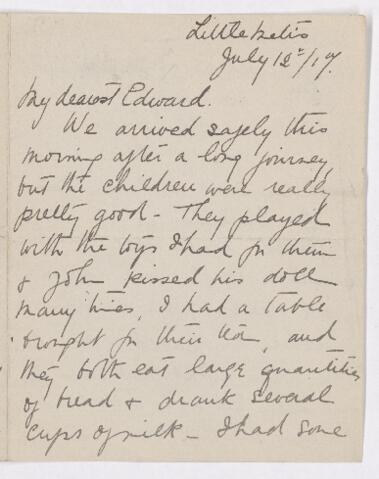 Little Metis
July 12ᵗ/17.
My dearest Edward.
We arrived safely this
morning after a long journey
but the children were really
pretty good - They played
with the toys I had for them
& John kissed his doll
many times, I had a table
brought for their tea, and
they both eat large quantities
of bread & drank several
cups of milk - I had some